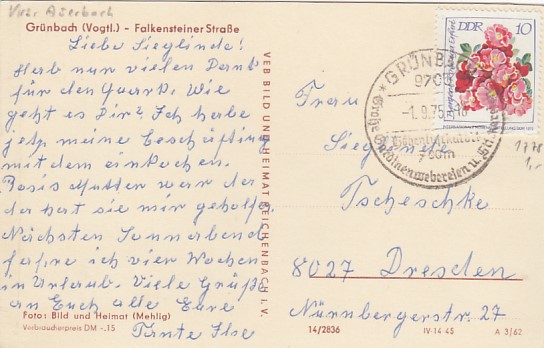 Grünbach (Vogtl.) - Falkensteiner Straße
Liebe Sieglinde!
Hab nun vielen Dank
für den Quark. Wie
geht es Dir? Ich habe
jetzt meine Beschäftigung
mit dem Einkochen.
Mutter war da
der hat sie mir geholfen
Nächsten Sonnabend
fahre ich vier Wochen
in Urlaub. Viele Grüße
an Euch alle Eure
Tante Ilse
Foto: Bild und Heimat (Mehlig)
Verbraucherpreis DM -.15
VEB BILD UND HEIMAT REICHENBACH i. V.
DDR 10
GRÜNBACH
9706
-1.9.75
Höhenluftkurort
750m
Frau
Sieglinde
Tscheschke
8027 Dresden
Nürnbergerstr. 27
14/2836 IV-14-45 A 3/62